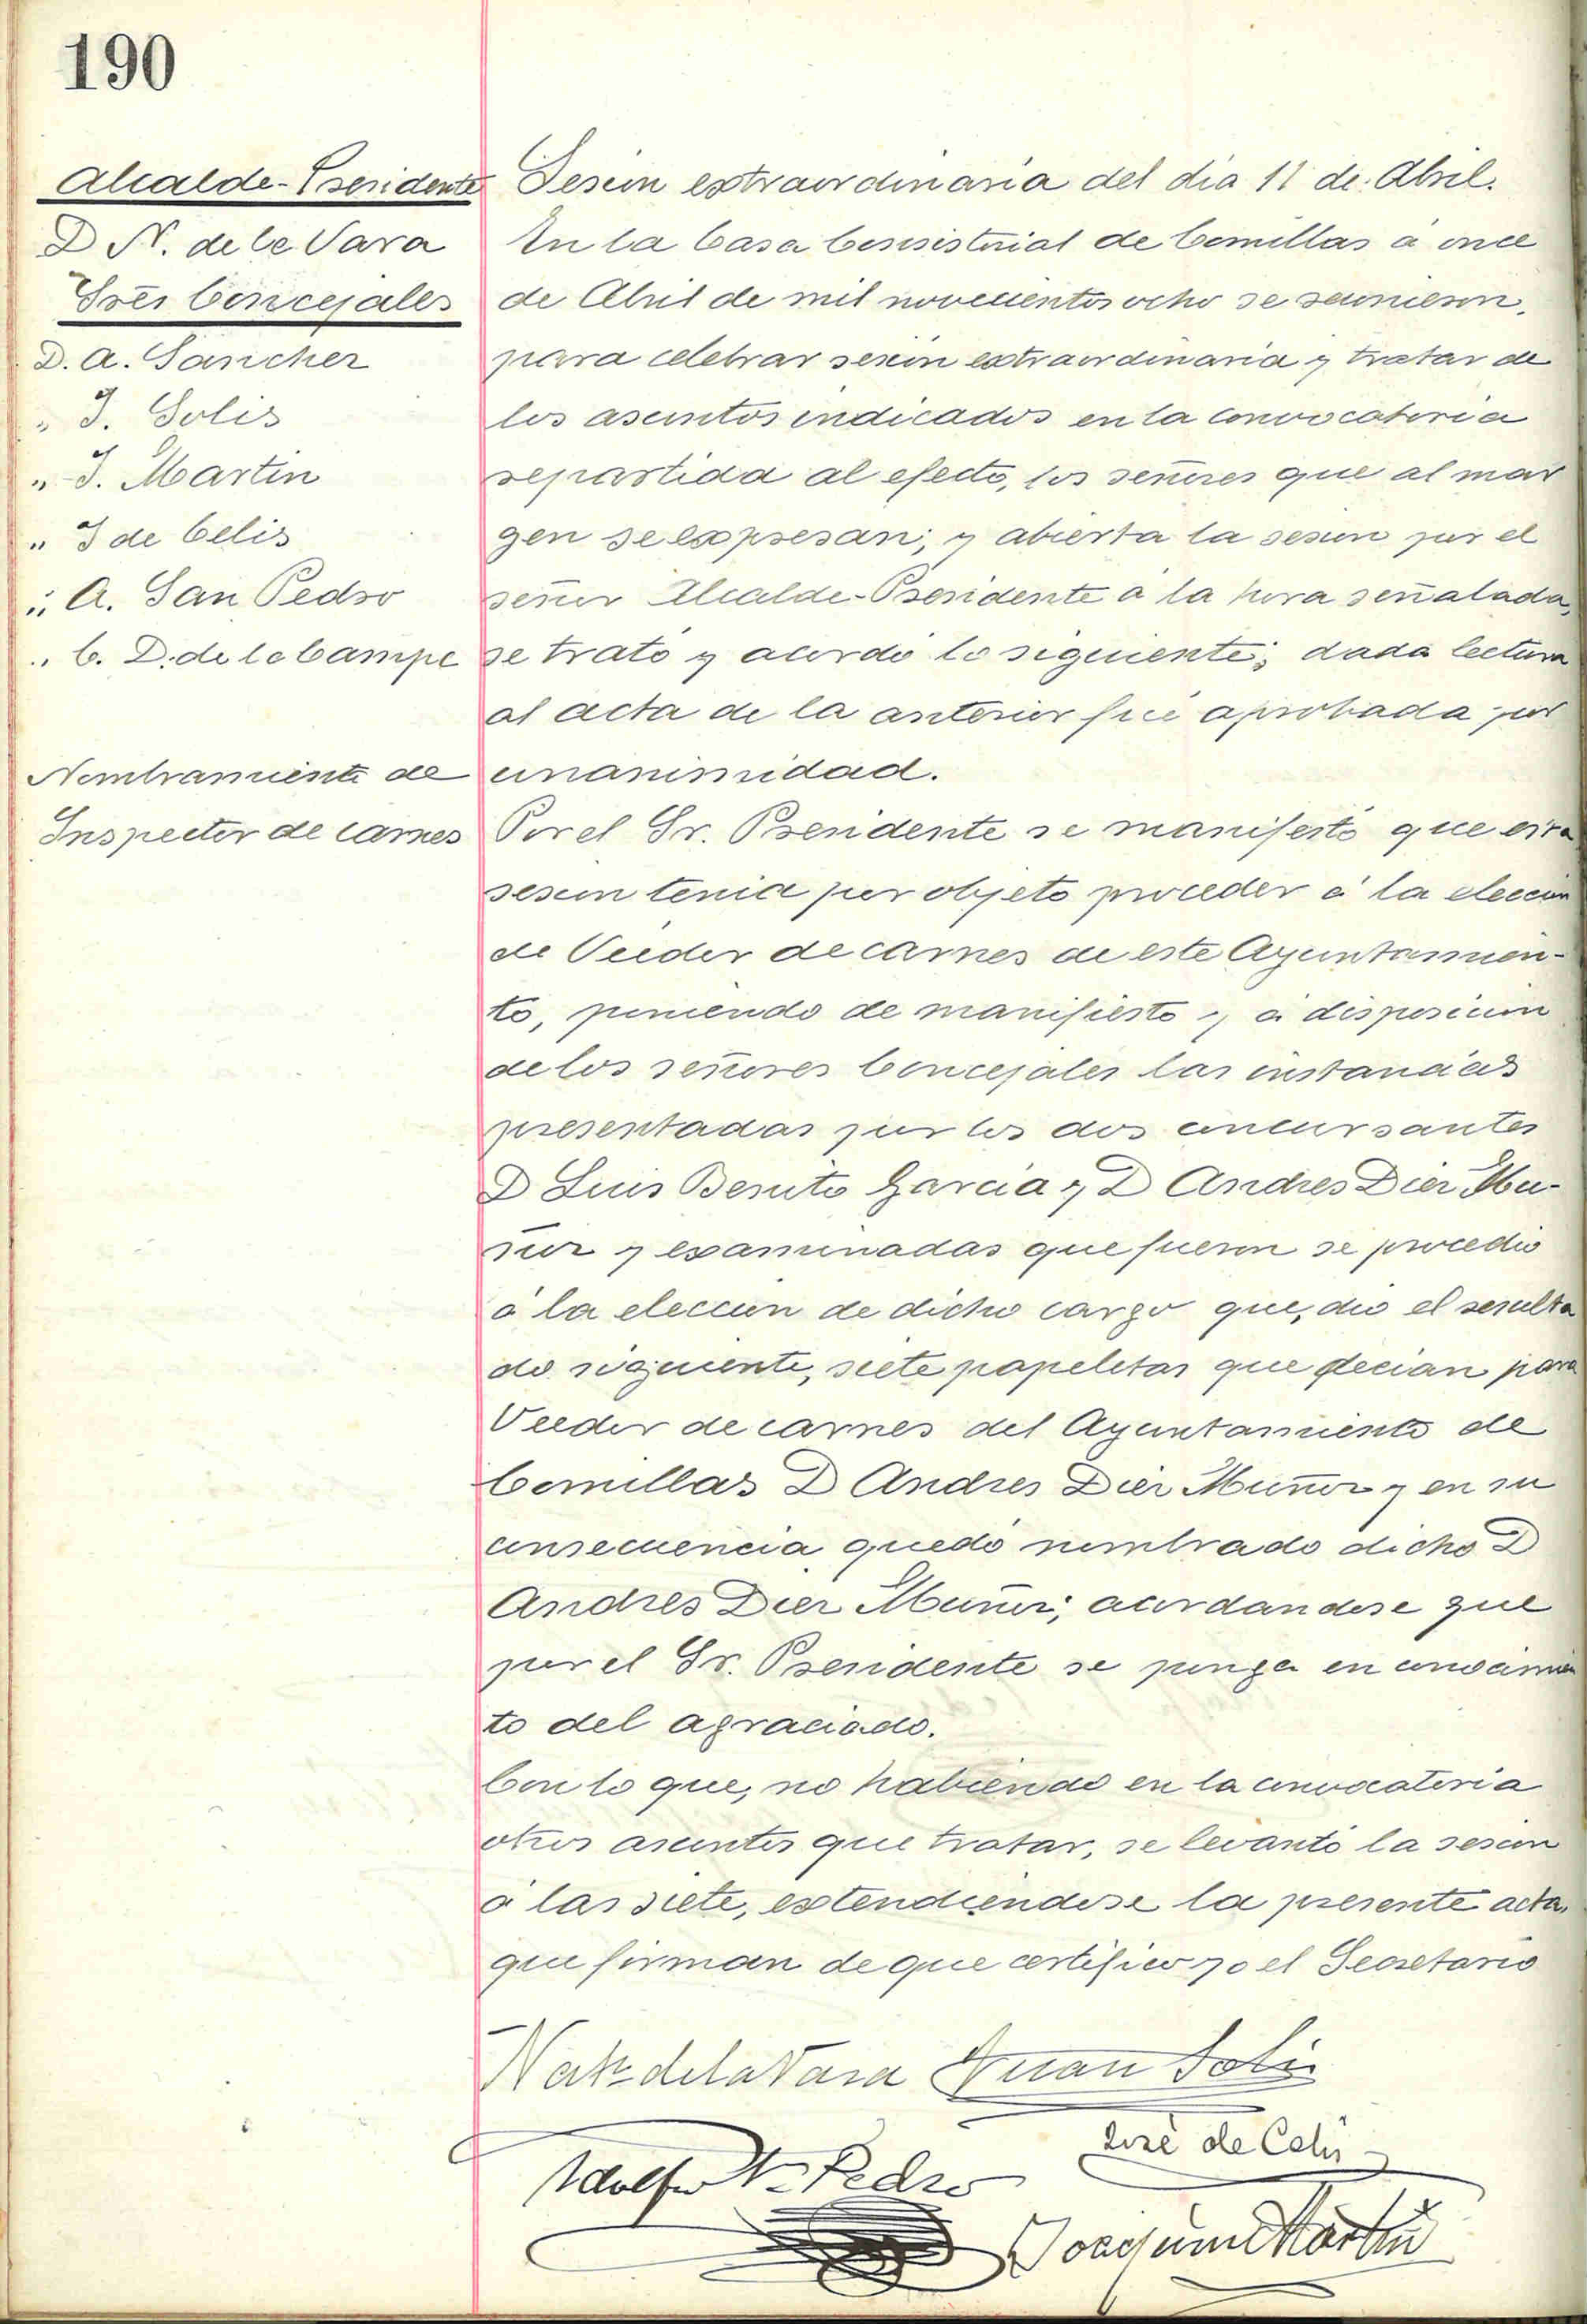 190
Alcalde-Presidente
D N. de la Vara
Sres Concejales
D. A. Sanchez
" J. Solis
" J. Martin
" J de Celis
" A. San Pedro
" C. D. de la Campa
Nombramiento de
Inspector de carnes
Sesion extraordinaria del dia 11 de Abril.
En la Casa Consistorial de Comillas a once
de Abril de mil novecientos ocho se reunieron,
para celebrar sesion extraordinaria y tratar de
los asuntos indicados en la convocatoria
repartida al efecto, los señores que al mar
gen se expresan; y abierta la sesion por el
señor Alcalde-Presidente a la hora señalada,
se trató y acordó lo siguiente; dada lectura
al acta de la anterior fué aprobada por
unanimidad.
Por el Sr. Presidente se manifestó que esta
sesion tenia por objeto proceder á la eleccion
de Veedor de carnes de este Ayuntamien-
to, poniendo de manifiesto y á disposicion
de los señores Concejales las instancias
presentadas por los dos concursantes
D Luis Benito Garcia y D Andres Diez Mu-
ñoz y examinadas que fueron se procedio
á la eleccion de dicho cargo que, dio el resulta
do siguiente, siete papeletas que decian para
Veedor de carnes del Ayuntamiento de
Comillas D Andres Diez Muñoz y en su
consecuencia quedó nombrado dicho D
Andres Diez Muñoz; acordandose que
por el Sr. Presidente se ponga en conocimien
to del agraciado.
Con lo que, no habiendo en la convocatoria
otros asuntos que tratar, se levantó la sesion
á las siete, extendiendose la presente acta,
que firman de que certifico yo el Secretario
de la Vara Juan Solis
José de Celis
Adolfo Sn Pedro
Joaquin Martin